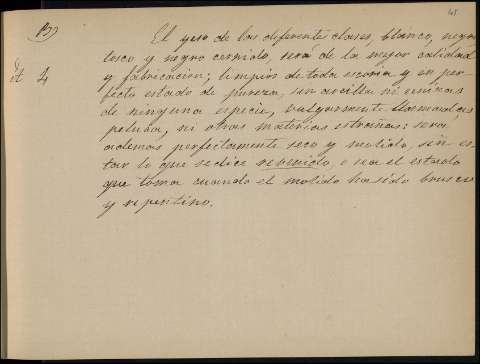 El yeso de las diferentes clases, blanco, negro
tosco y negro cernido, será de la mejor calidad
y fabricación; limpios de toda escoria y en per-
fecto estado de pureza, sin arcilla ni
de ninguna especie, vulgarmente llamadas
ni otras materias estrañas: será
ademas perfectamente seco y molido, sin es-
tar lo que se dice revenido, o sea el estado
que toma cuando el molido ha sido brusco
y repentino.